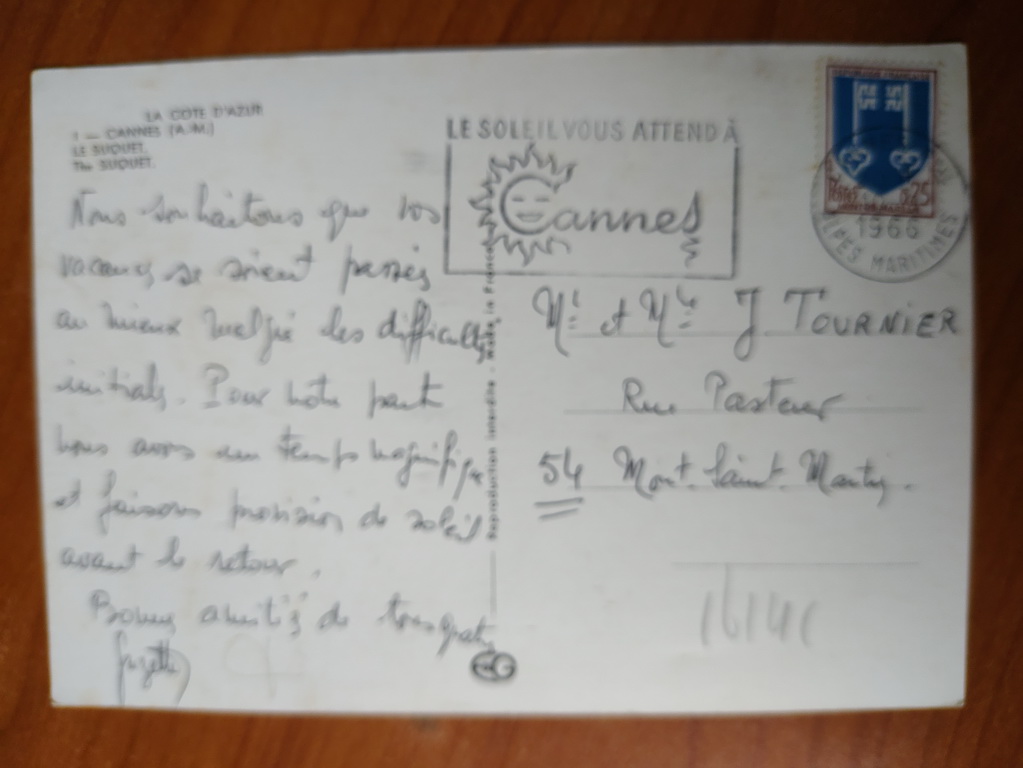 LA COTE D'AZUR
1 — CANNES (A.-M.)
LE SUQUET.
The SUQUET.
Nous souhaitons que vos
vacances se soient passées
au mieux malgré les difficultés
initiales. Pour notre part
nous avons un temps magnifique
et faisons provision de soleil
avant le retour.
Bonnes amitiés de tous quatre
LE SOLEIL VOUS ATTEND À
Cannes
REPUBLIQUE FRANÇAISE
0,25
1966
ALPES MARITIMES
Reproduction interdite - Made in France
Mr et Mme J TOURNIER
Rue Pasteur
54 Mont-Saint-Martin.